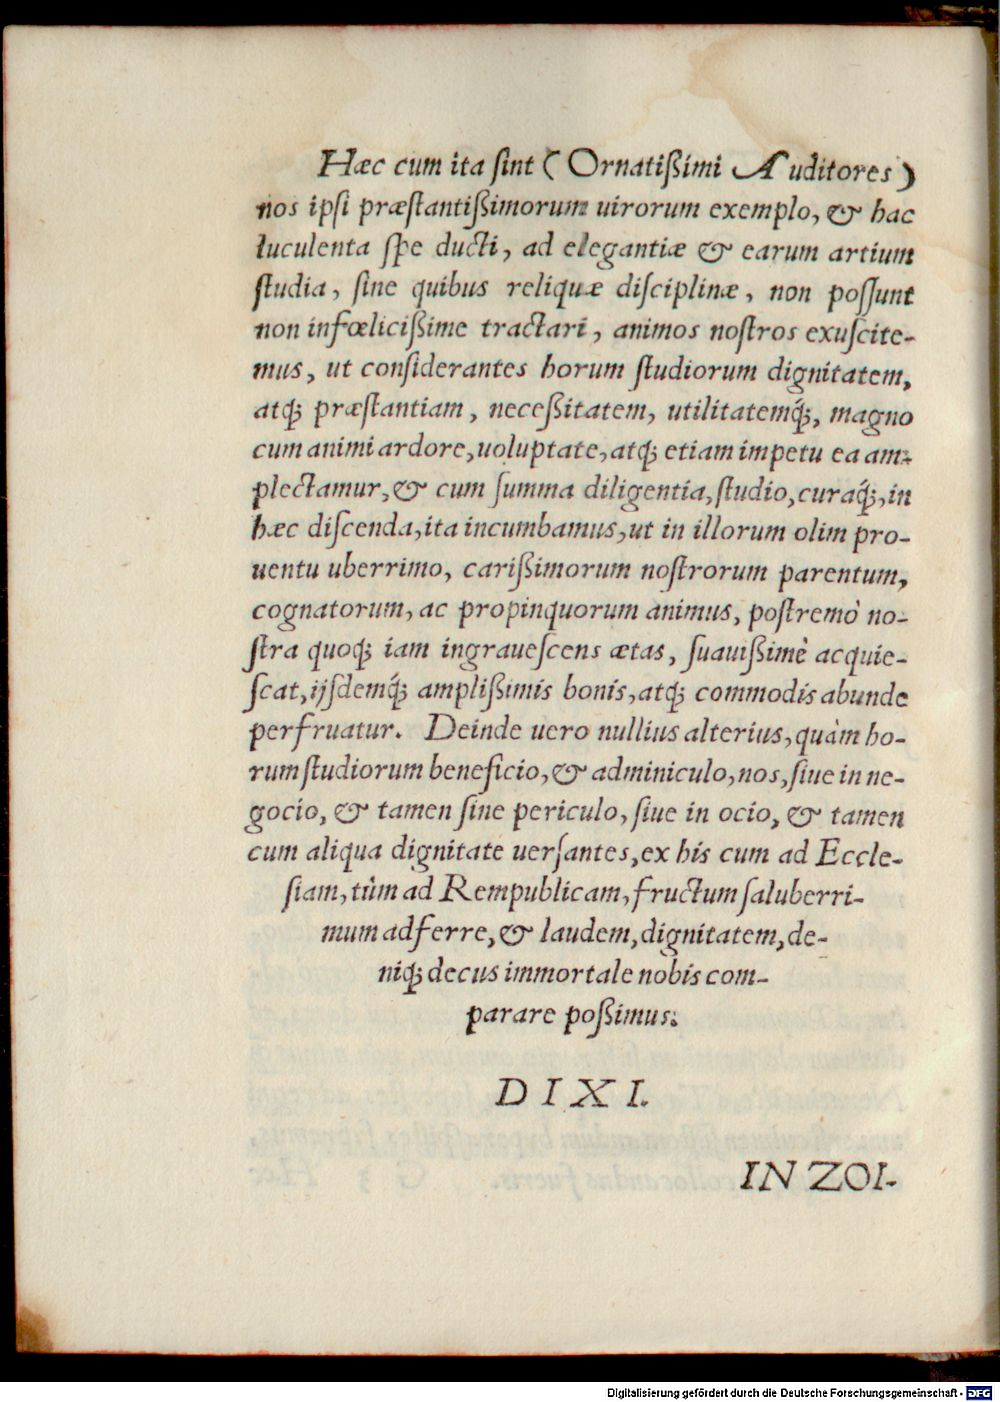 Hæc cum ita ſint (Ornatißimi Auditores)
nos ipſi præſtantißimorum uirorum exemplo, & hac
luculenta ſpe ducti, ad elegantiæ & earum artium
ſtudia, ſine quibus reliquæ diſciplinæ, non poſſunt
non infœlicißime tractari, animos noſtros exuſcite-
mus, ut conſiderantes horum ſtudiorum dignitatem,
atq́ꝫ præſtantiam, neceßitatem, utilitatemq́ꝫ, magno
cum animi ardore, uoluptate, atq́ꝫ etiam impetu ea am-
plectamur, & cum ſumma diligentia, ſtudio, curaq́ꝫ, in
hæc diſcenda, ita incumbamus, ut in illorum olim pro-
uentu uberrimo, carißimorum noſtrorum parentum,
cognatorum, ac propinquorum animus, poſtremò no-
ſtra quoqꝫ iam ingraueſcens ætas, ſuauißimè acquie-
ſcat, ijſdemq́ꝫ amplißimis bonis, atqꝫ commodis abunde
perfruatur. Deinde uero nullius alterius, quàm ho-
rum ſtudiorum beneficio, & adminiculo, nos, ſiue in ne-
gocio, & tamen ſine periculo, ſiue in ocio, & tamen
cum aliqua dignitate uerſantes, ex his cum ad Eccle-
ſiam, tùm ad Rempublicam, fructum ſaluberri-
mum adferre, & laudem, dignitatem, de-
niqꝫ decus immortale nobis com-
parare poßimus.
DIXI.
IN ZOI-
Digitalisierung gefördert durch die Deutsche Forschungsgemeinschaft - DFG